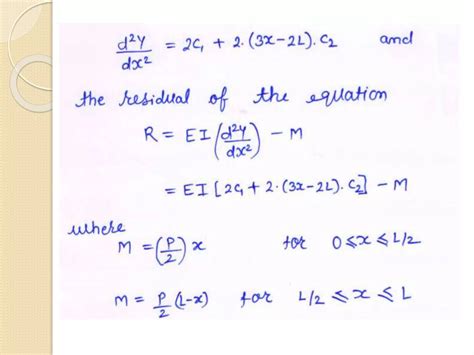 d²y/dx² = 2C₁ + 2·(3x-2L)·C₂ and
the residual of the equation
R = EI(d²y/dx²) - M
= EI[2C₁ + 2·(3x-2L)·C₂] - M
where
M = (P/2)x for 0≤x≤L/2
M = P/2 (L-x) for L/2 ≤ x ≤ L